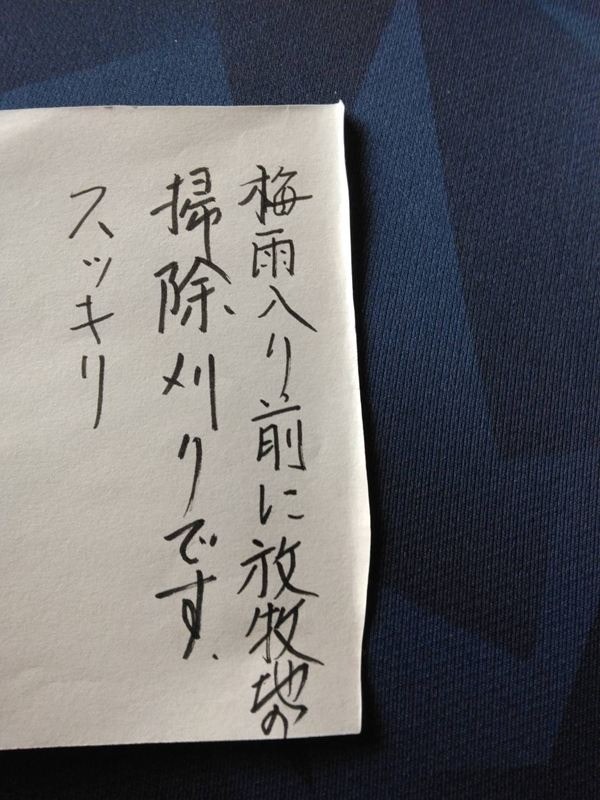 梅雨入り前に放牧地の
掃除刈りです.
スッキリ